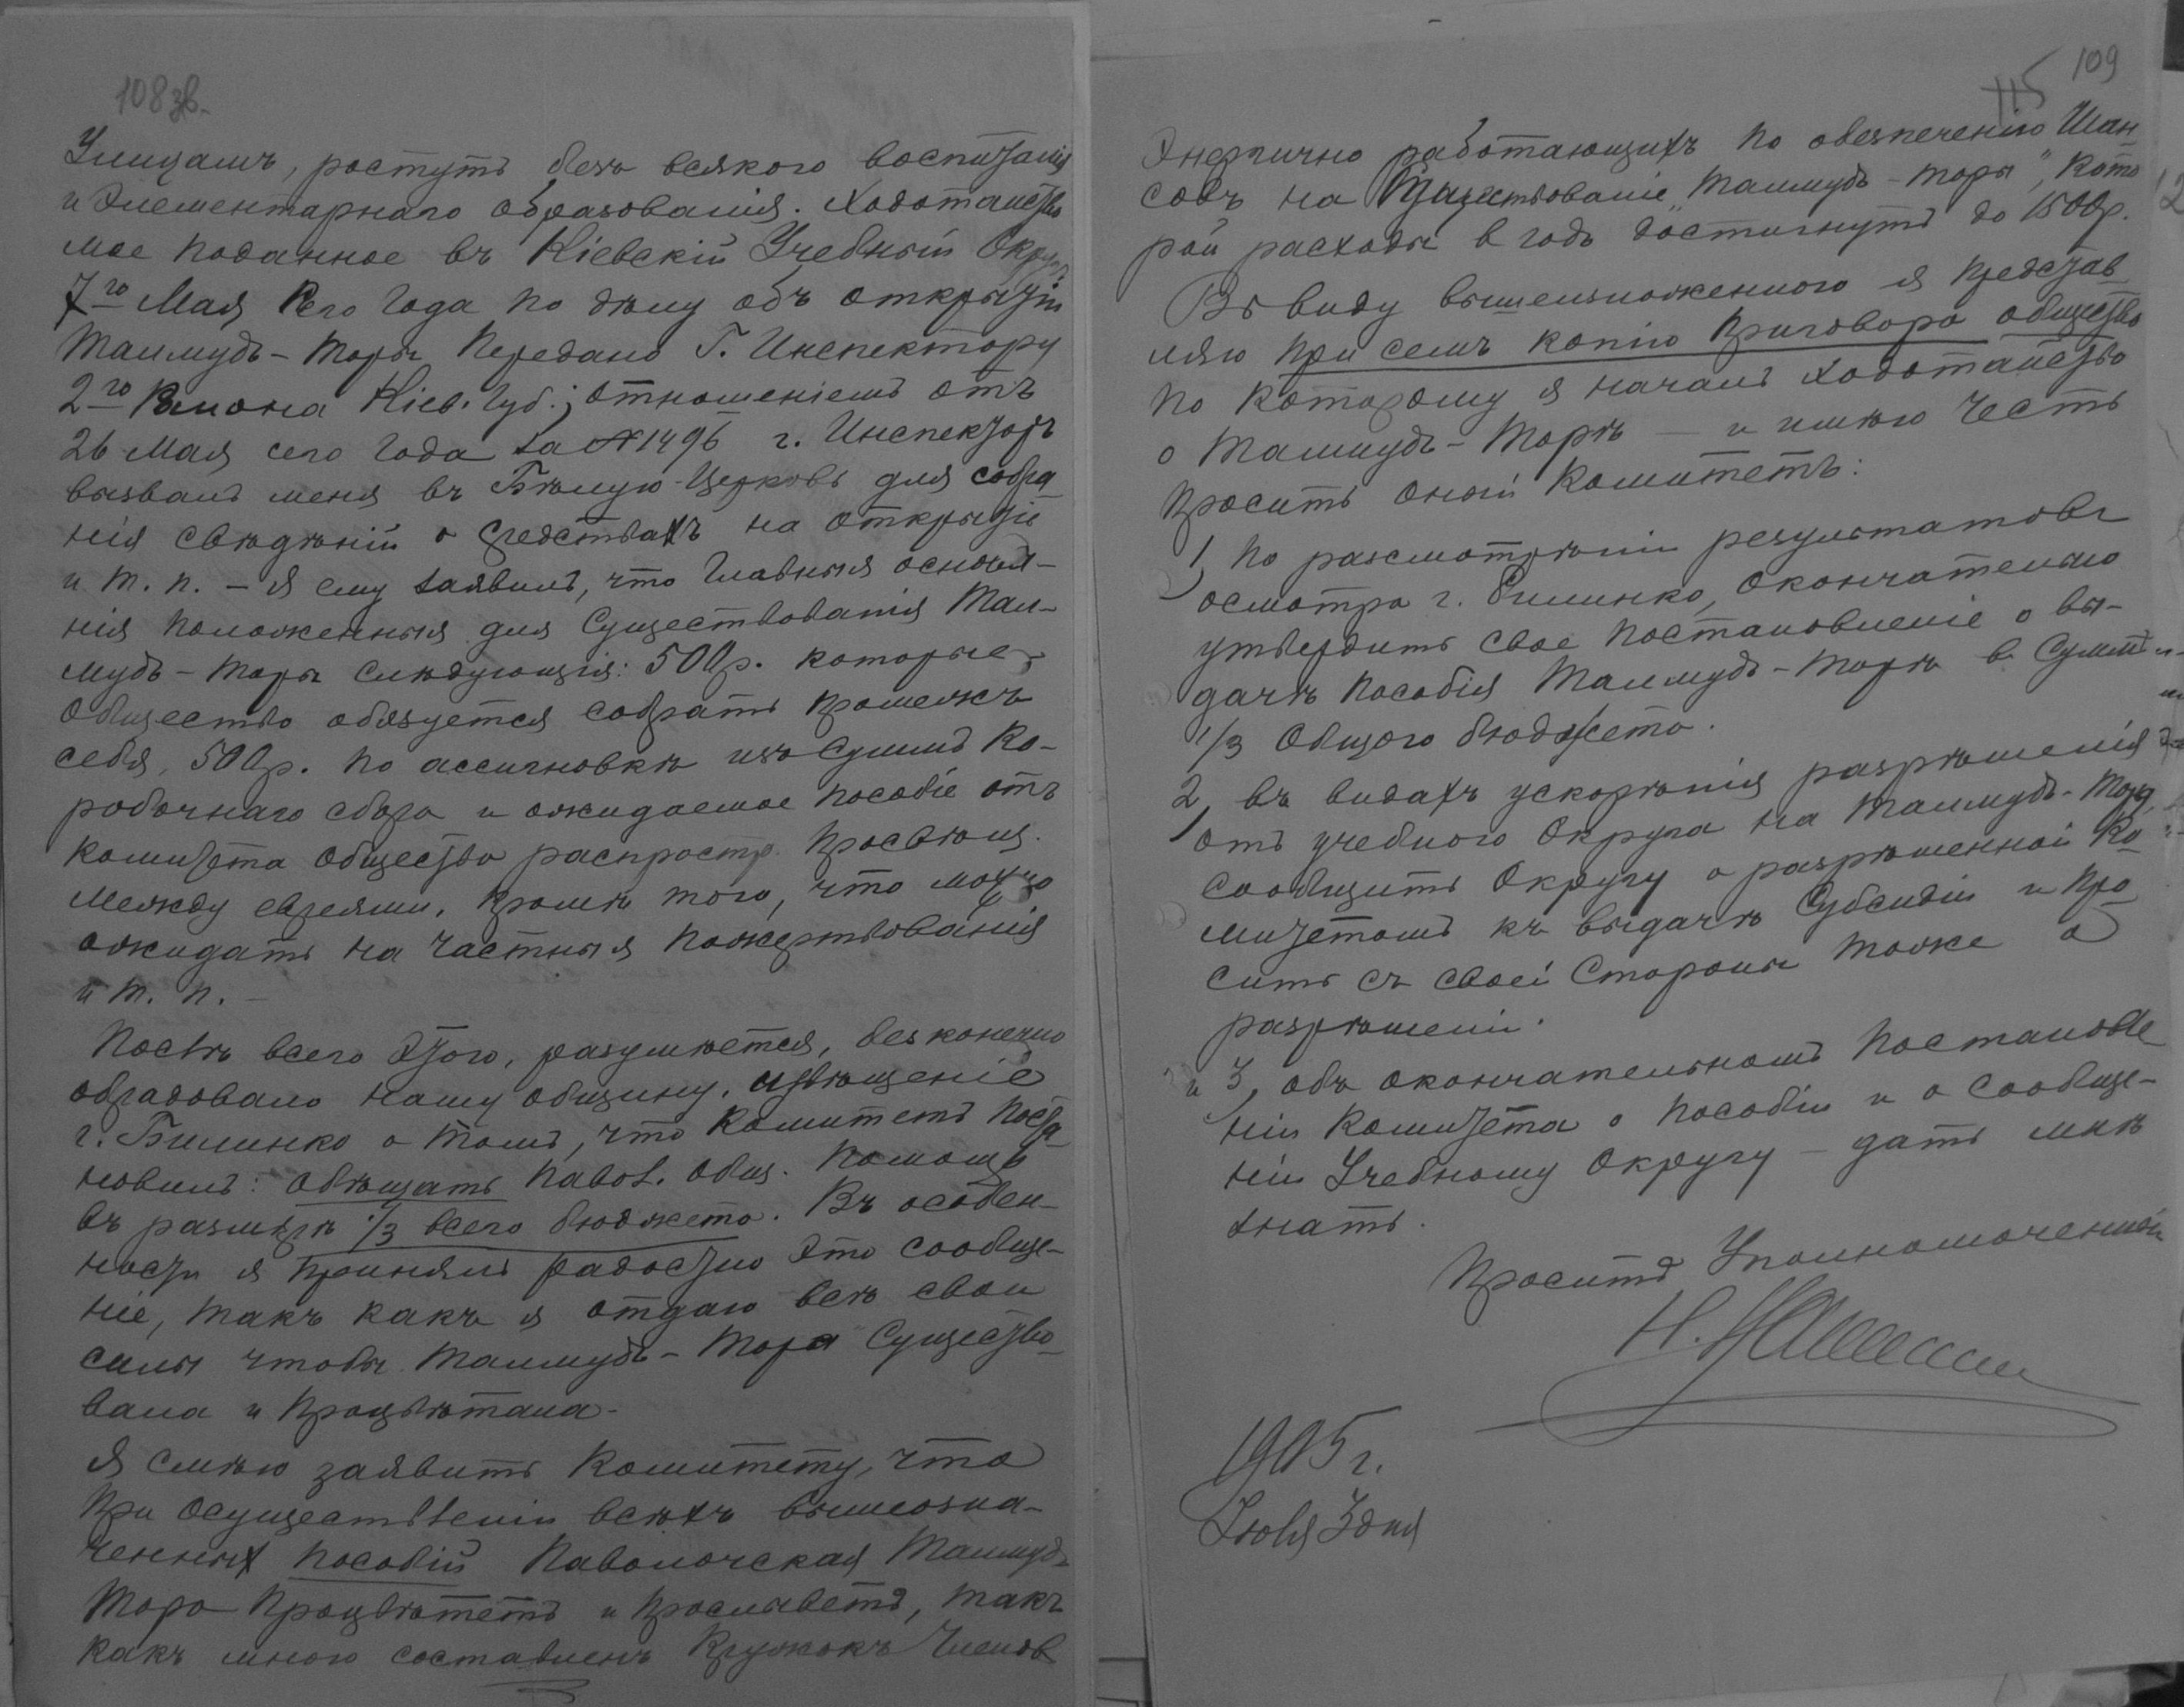 108 зв.
Улицамъ,ростутъ безъ всякого воспитанія
и Элементарнаго образованія. Ходотайство
мое поданное въ Кіевскій Учебный Округъ
7го Мая сего года по дѣлу объ открытіи
Талмудъ-Торы передано Г. Инспектору
2го Раиона Кіев. Губ.; отношеніемъ отъ
26 Мая сего года за №1496 г. Инспекторъ
вызвалъ меня въ Бѣлую-Церковь для собра-
нія свѣдѣній о средствахъ на открытіе
и т. п. – Я ему заявилъ, что главныя основа-
нія положенныя для Существованія Тал-
мудъ-Торы слѣдующія: 500р. которые
Общество обязуется собрать промежъ
себя, 500р. по ассигновкѣ изъ Суммъ Ко-
робочнаго сбора и ожидаемое пособіе отъ
комитета общества распростр. просвѣщ.
между евреями, кромѣ того, что можно
ожидать на частныя пожертвованія
и т. п. –
Послѣ всего этого, разумѣется, безконечно
обрадовало нашу общину, извѣщеніе
г. Билинко о томъ, что комитетъ поста-
новилъ: обѣщать Павол. общ. помощь
въ размѣрѣ 1/3 всего бюджета. Въ особен-
ности я принялъ радостно это сообще-
ніе, такъ какъ я отдаю всѣ свои
силы чтобы Талмудъ-Тора Существо-
вала и процвѣтала.
Я смѣю заявить комитету, что
при осуществленіи всѣхъ вышеозна-
ченных пособій Паволочская Талмудъ-
Тора процвѣтетъ и прославетъ, такъ
какъ мною составленъ кружокъ членов
109
115
Энергично работающихъ по обезпеченію Шан-
совъ на Существованіе „Талмудъ-Торы", кото-
рой расходы в годъ достигнутъ до 1500р.
Въ виду вышеизложенного я представ-
ляю при семъ копію приговора общества
по которому я началъ ходотайство
о Талмудъ-Торѣ – и имѣю честь
просить оный комитетъ:
1, по разсмотрѣніи результатовъ
осмотра г. Билинко, окончательно
утвердить свое постановленіе о вы-
дачѣ пособія Талмудъ-Торѣ в Суммѣ
1/3 общого бюджета.
2, въ видахъ ускорѣнія разрѣшенія
отъ учебного округа на Талмудъ-Тору,
сообщить округу о разрѣшенной ко-
митетомъ къ выдачѣ субсидіи и про-
сить съ своей стороны тоже о
разрѣшеніи.
и 3, объ окончательномъ постановле
ніи комитета о пособіи и о сообще-
ніи Учебному округу – дать мнѣ
знать.
проситъ Уполномоченный
Н.
1905 г.
Іюля 3 дня